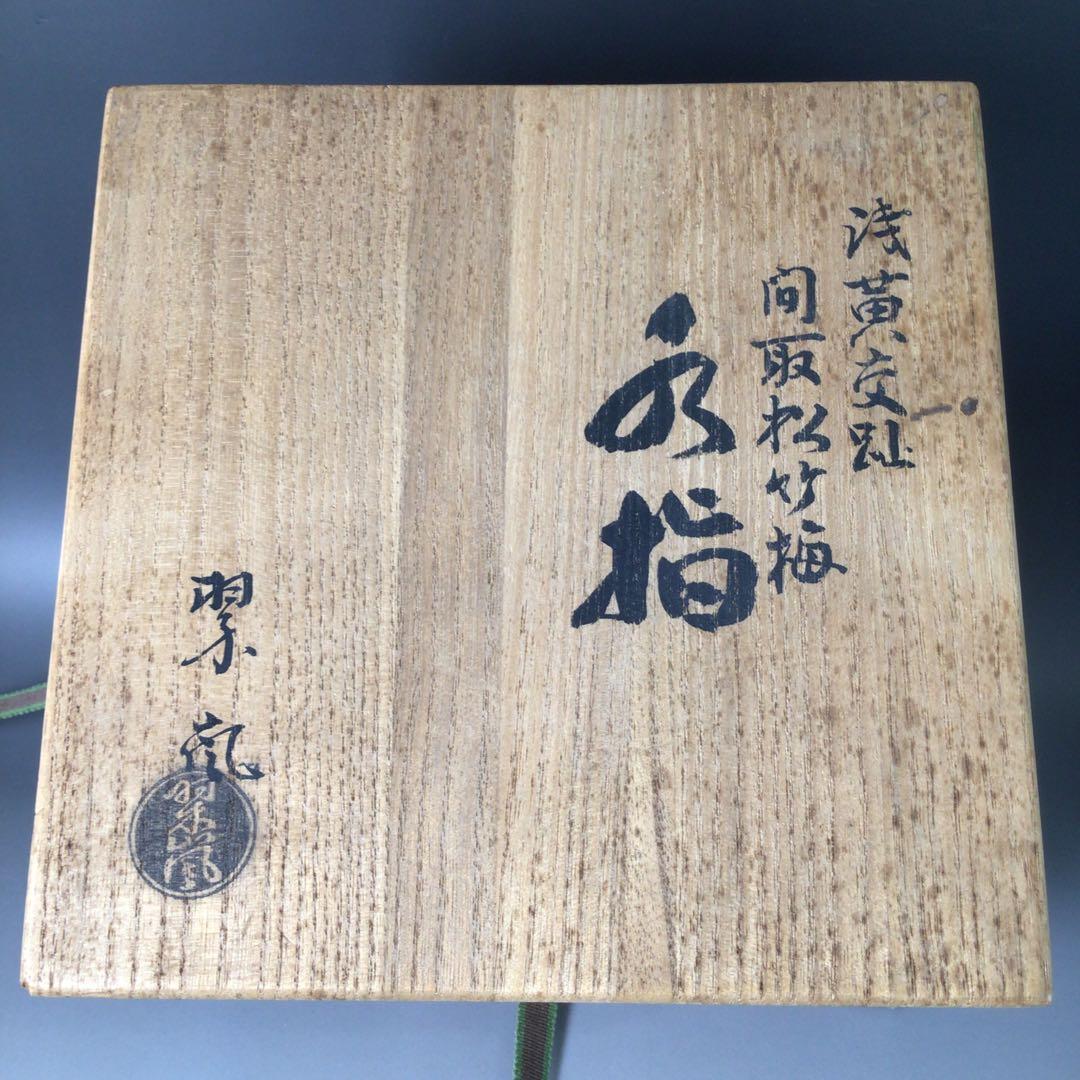 浅黄交趾
間取松竹梅
水指
翠嵐
翠嵐